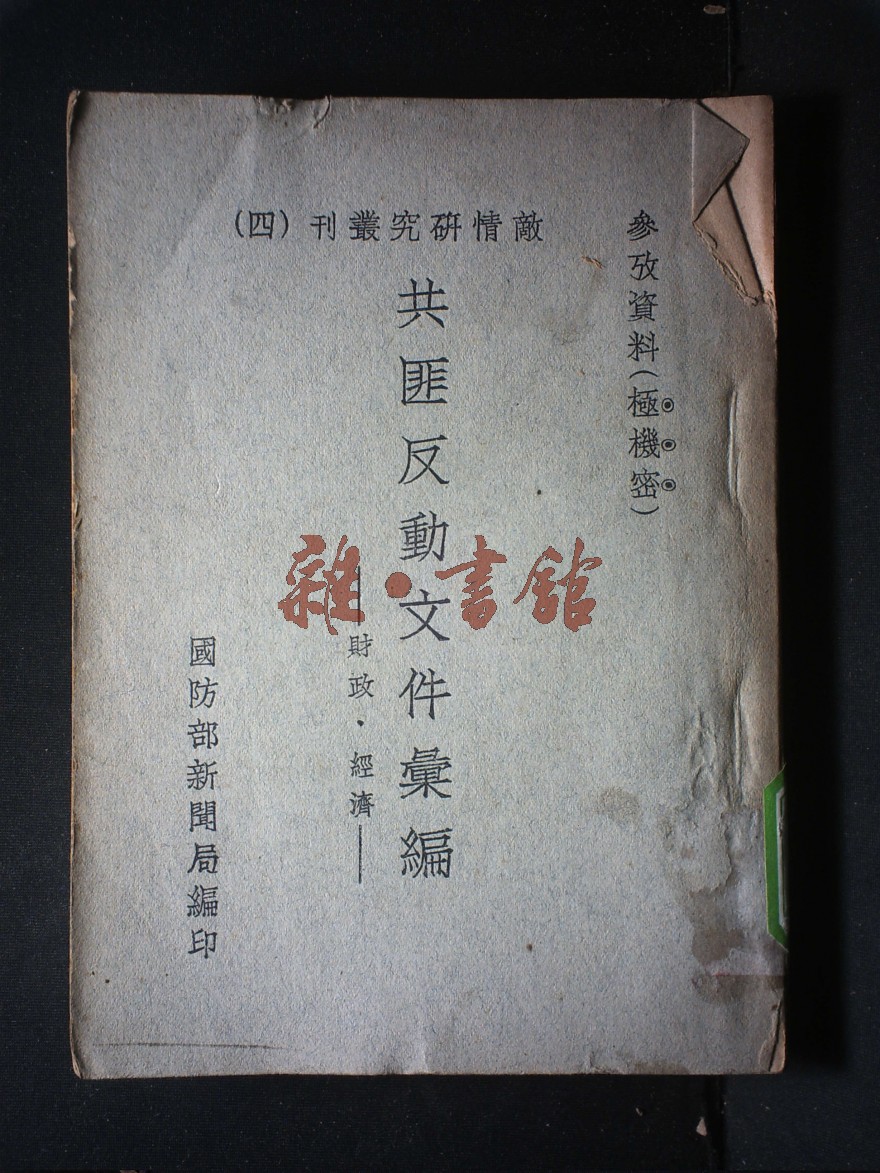 參攷資料(極機密)
敵情研究叢刊(四)
共匪反動文件彙編
——財政·經濟——
國防部新聞局編印
雜·書館